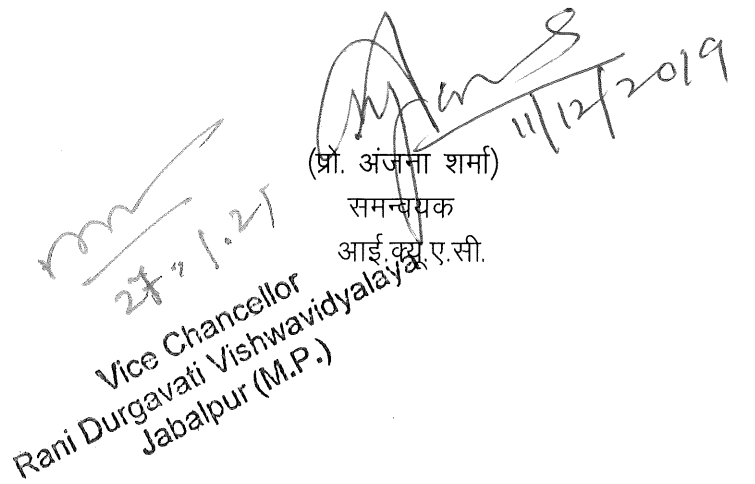 11/12/2019
(प्रो. अंजना शर्मा)
समन्वयक
आई.क्यू.ए.सी.
27.1.21
Vice Chancellor
Rani Durgavati Vishwavidyalaya
Jabalpur (M.P.)